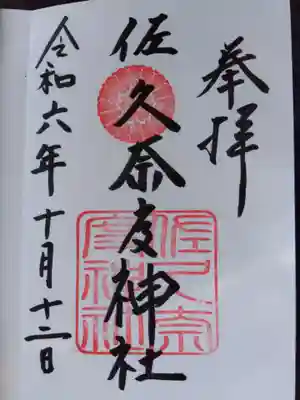 奉拝
佐久奈度神社
令和六年十月十二日
佐久奈度神社